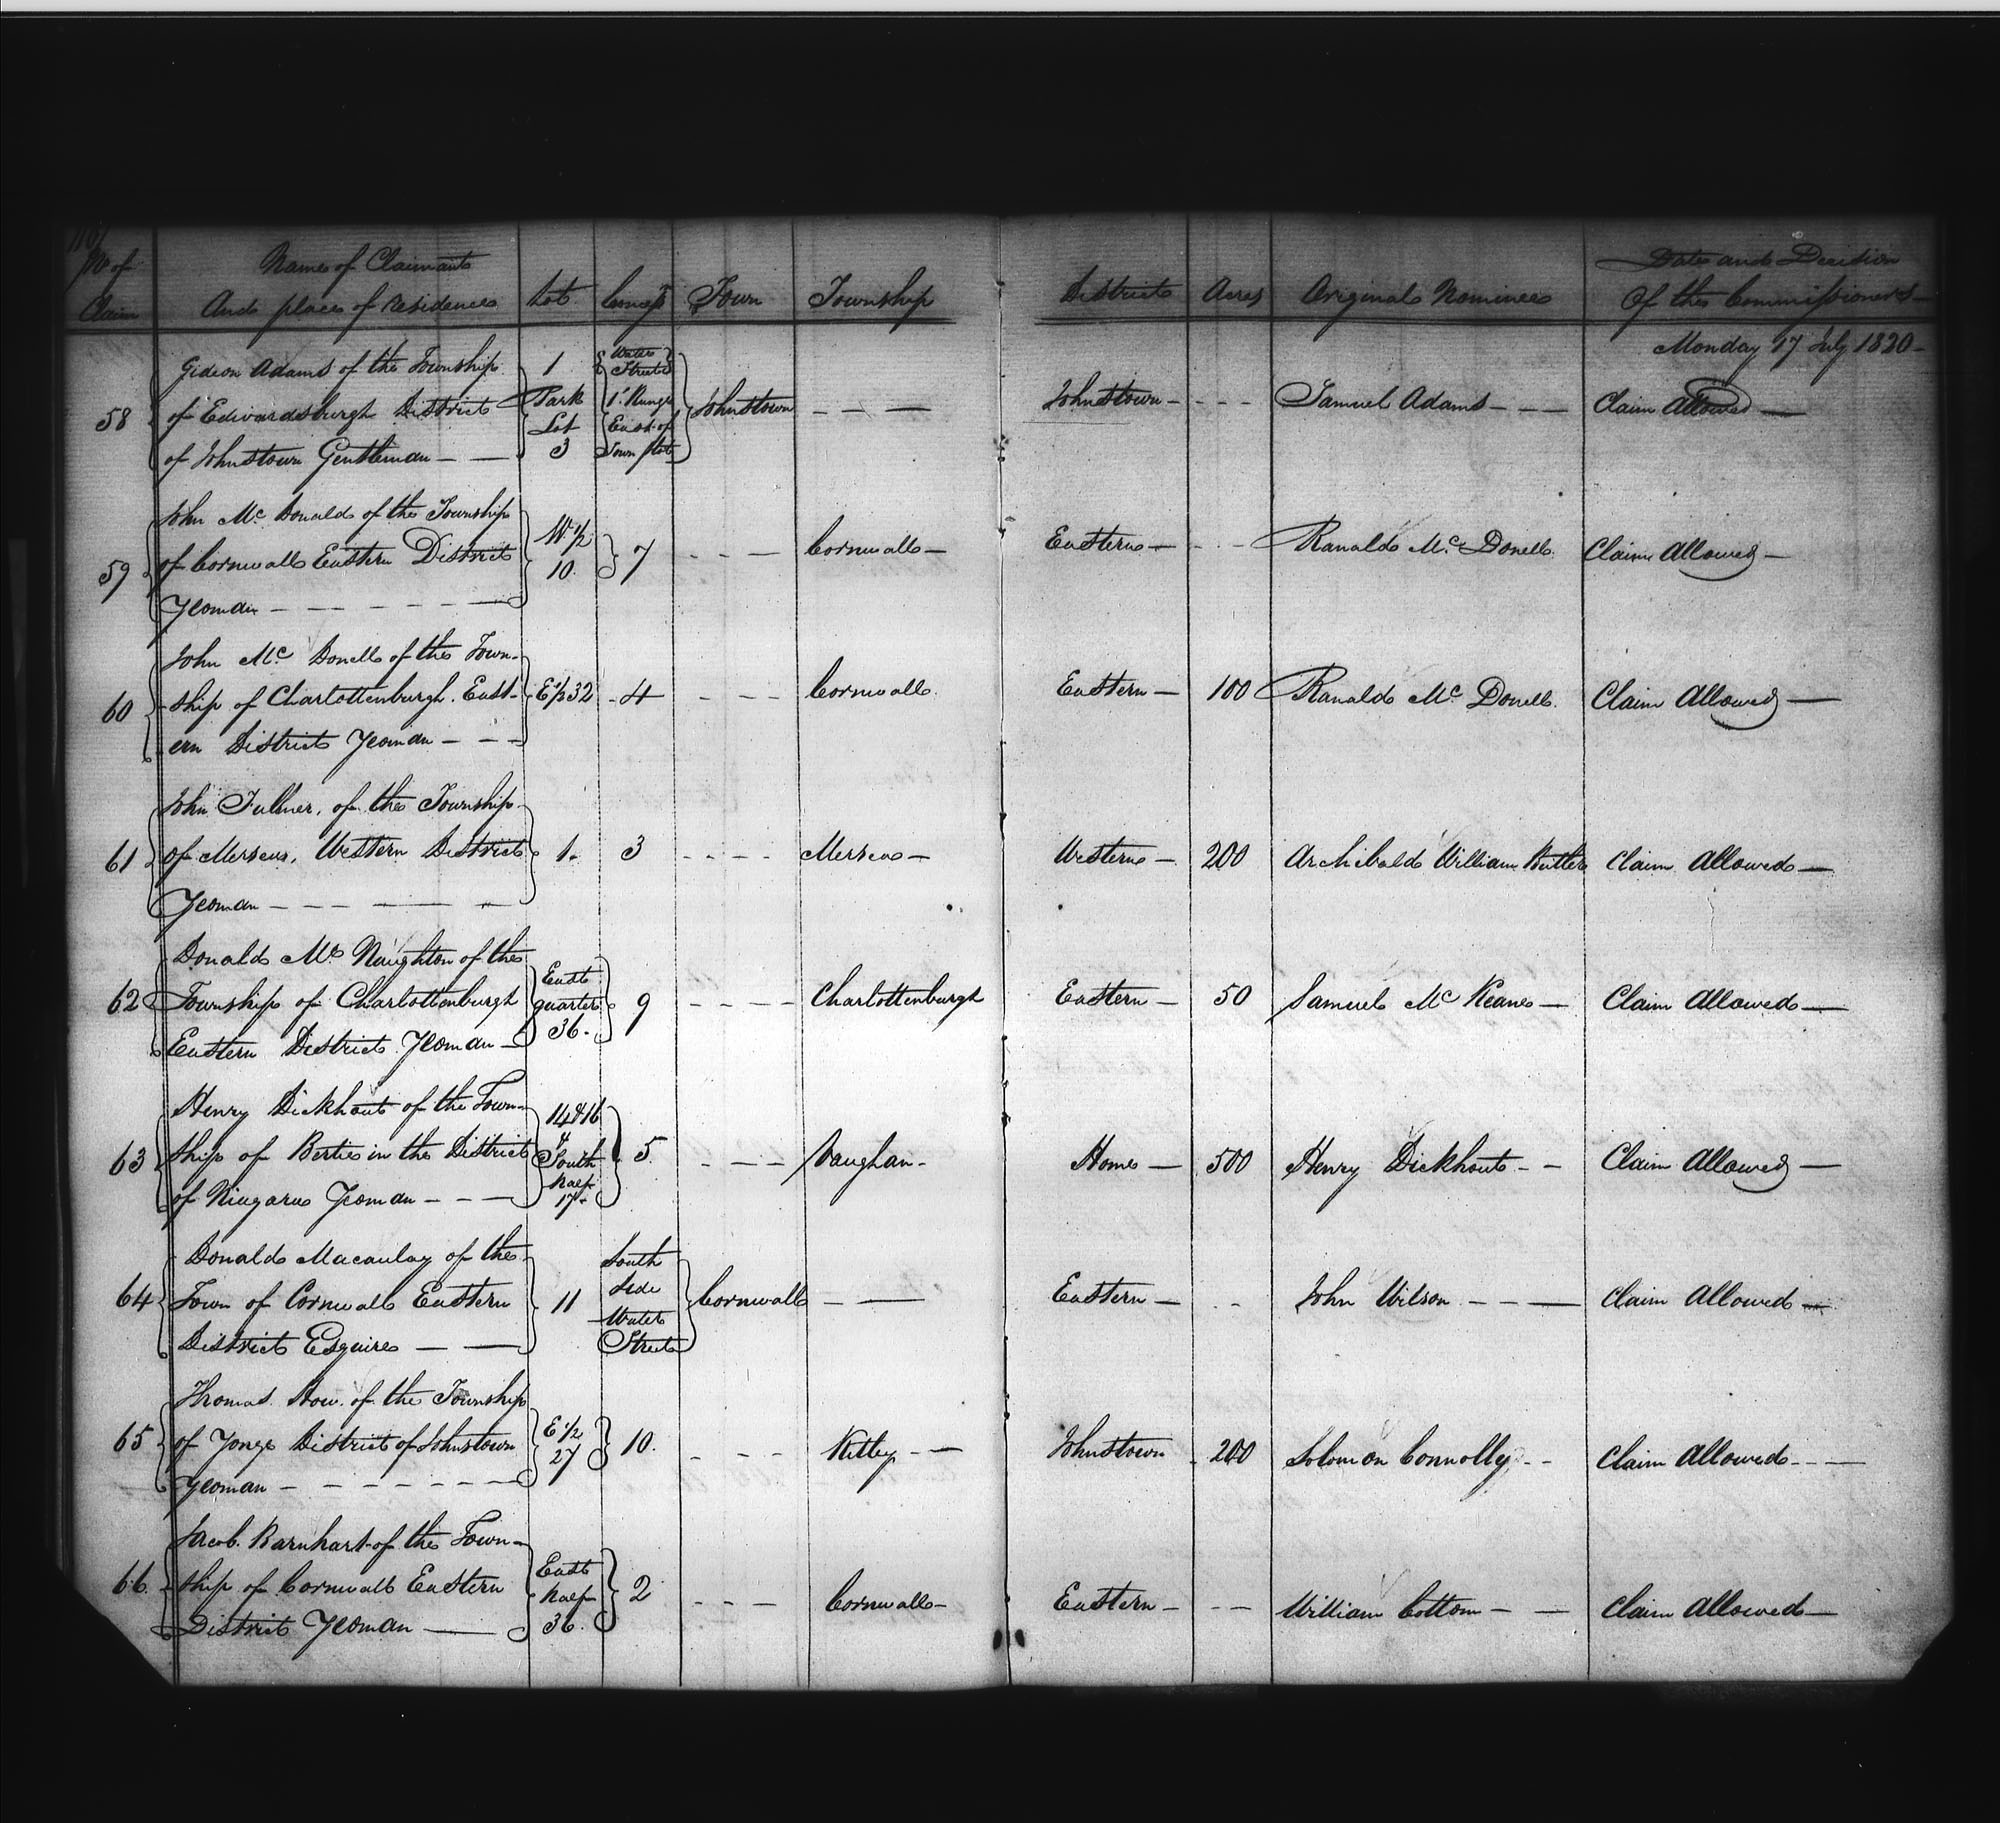 No of Claim | Name of Claimants And place of Residence | Lot | Concess | Town | Township | District | Acres | Original Nominee | Date and Decision Of the Commissioners
Monday 17 July 1820
58 | Gideon Adams of the Township | 1 | Water Street
of Edwardsburgh District | Park Lot | 1st Range East of | Johnstown | Johnstown | Samuel Adams | Claim Allowed
of Johnstown Gentleman | 3 | Town plot
John Mc Donald of the Township | W 1/2
59 | of Cornwall Eastern District | 10 | 7 | Cornwall | Eastern | Ranald Mc Donell | Claim Allowed
Yeoman
John Mc Donell of the Town-
60 | ship of Charlottenburgh East- | E 1/2 32 | 4 | Cornwall | Eastern | 100 | Ranald Mc Donell | Claim Allowed
ern District Yeoman
John Fulmer, of the Township
61 | of Mersea, Western District | 1 | 3 | Mersea | Western | 200 | Archibald William Butler | Claim Allowed
Yeoman
Donald Mc Naughton of the | East
62 | Township of Charlottenburgh | quarter | 9 | Charlottenburgh | Eastern | 50 | Samuel Mc Keane | Claim Allowed
Eastern District Yeoman | 36
Henry Dickhout of the Town- | 14 & 16 &
63 | ship of Bertie in the District | South half | 5 | Vaughan | Home | 500 | Henry Dickhout | Claim Allowed
of Niagara Yeoman | 17
Donald Macaulay of the | South
64 | Town of Cornwall Eastern | 11 | Side Water | Cornwall | Eastern | John Wilson | Claim Allowed
District Esquire | Street
Thomas How of the Township | E 1/2
65 | of Yonge District of Johnstown | 27 | 10 | Kitley | Johnstown | 200 | Solomon Connolly | Claim Allowed
Yeoman
Jacob Barnhart of the Town- | East
66 | ship of Cornwall Eastern | half | 2 | Cornwall | Eastern | William Cottom | Claim Allowed
District Yeoman | 36